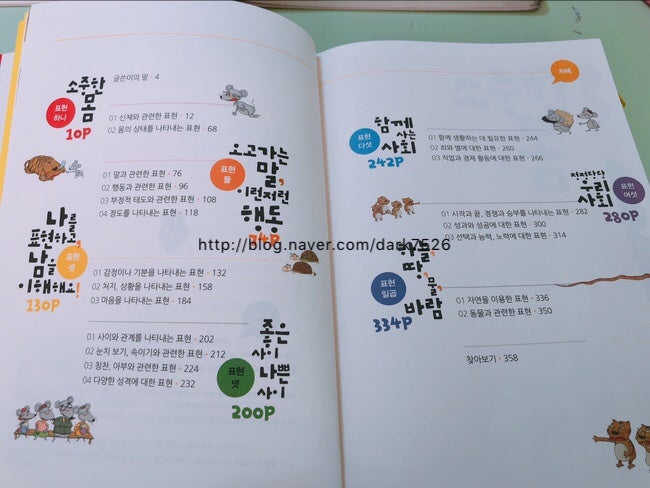 글쓴이의 말 · 4
소중한
몸
표현
하나
10P
01 신체와 관련한 표현 · 12
02 몸의 상태를 나타내는 표현 · 68
오고가는
말,
이런저런
행동
표현
둘
74P
01 말과 관련한 표현 · 76
02 행동과 관련한 표현 · 96
03 부정적 태도와 관련한 표현 · 108
04 정도를 나타내는 표현 · 118
나를
표현하고,
남을
이해해요!
표현
셋
130P
01 감정이나 기분을 나타내는 표현 · 132
02 처지, 상황을 나타내는 표현 · 158
03 마음을 나타내는 표현 · 184
좋은
사이
나쁜
사이
표현
넷
200P
01 사이와 관계를 나타내는 표현 · 202
02 눈치 보기, 속이기와 관련한 표현 · 212
03 칭찬, 아부와 관련한 표현 · 224
04 다양한 성격에 대한 표현 · 232
차례
함께
사는
사회
표현
다섯
242P
01 함께 생활하는 데 필요한 표현 · 244
02 죄와 벌에 대한 표현 · 260
03 직업과 경제 활동에 대한 표현 · 266
정정당당
우리
사회
표현
여섯
280P
01 시작과 끝, 경쟁과 승부를 나타내는 표현 · 282
02 성과와 성공에 대한 표현 · 300
03 선택과 능력, 노력에 대한 표현 · 314
하늘,
땅,
물,
바람
표현
일곱
334P
01 자연을 이용한 표현 · 336
02 동물과 관련한 표현 · 350
찾아보기 · 358
http://blog.naver.com/dark7526